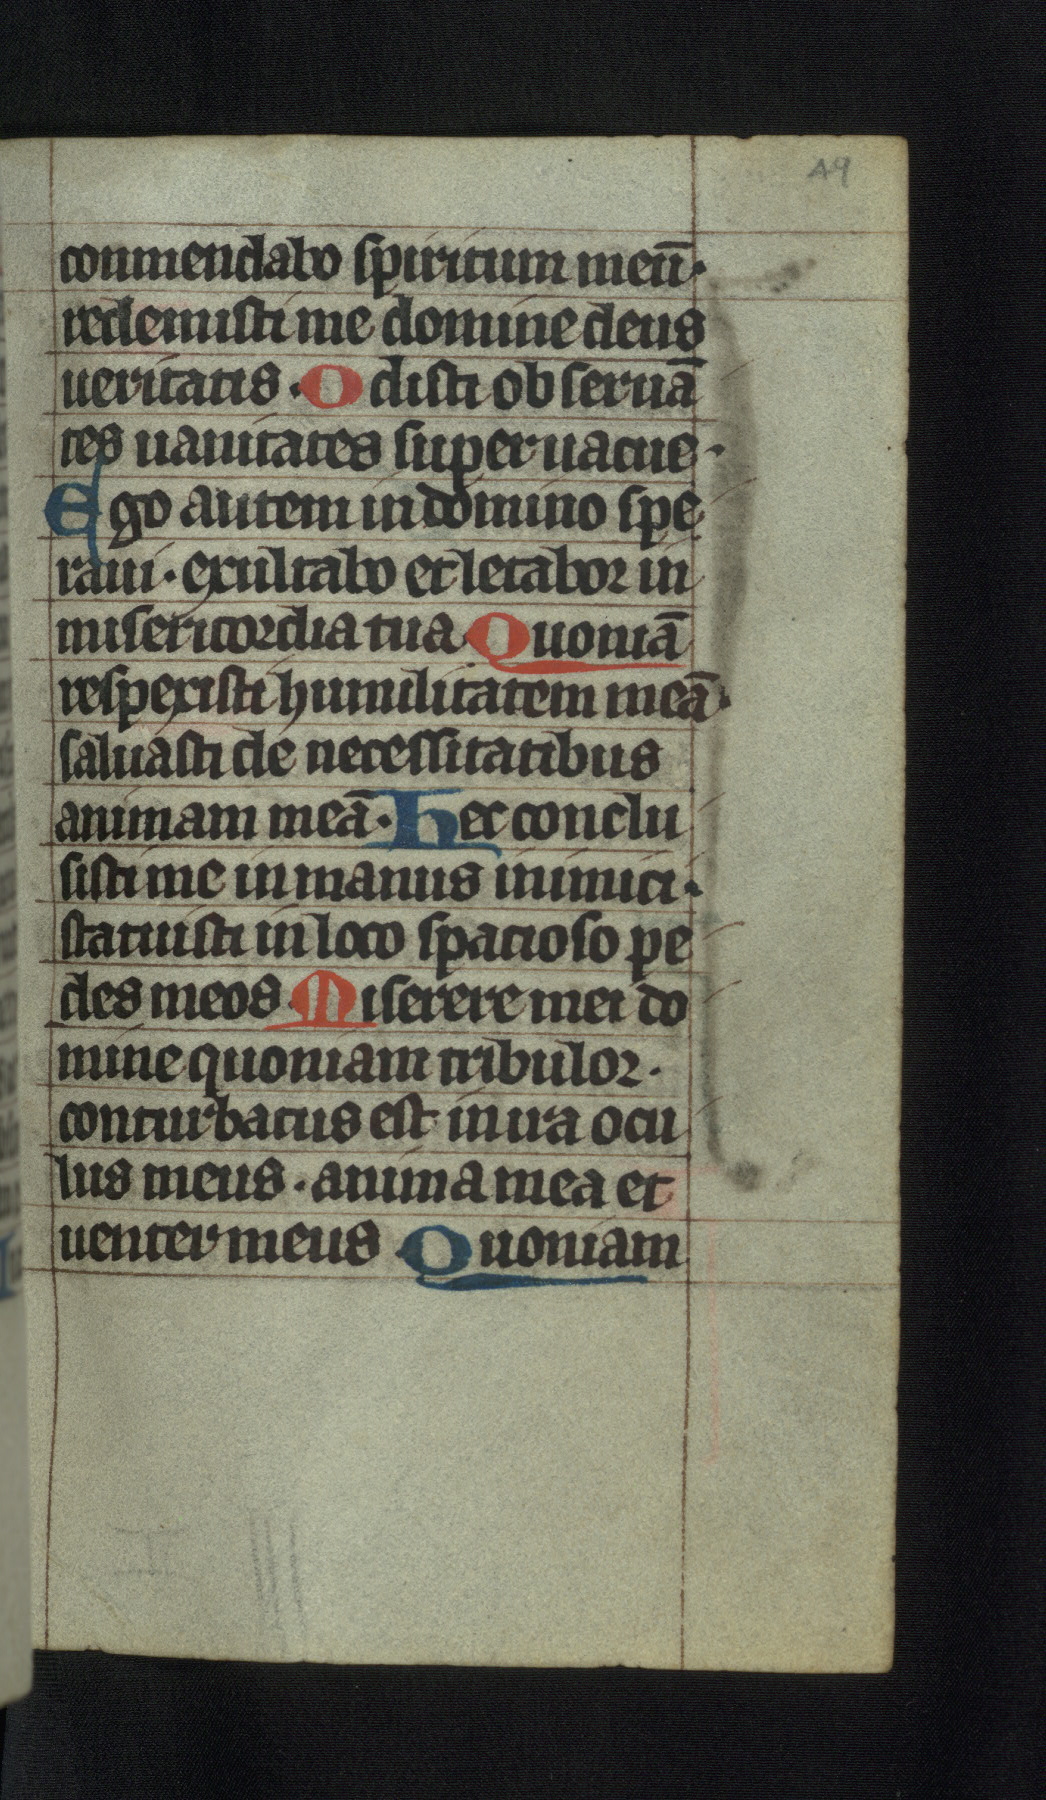 49
conmendabo spiritum meū·
redemisti me domine deus
ueritatis · Odisti obseruā
tes uanitates superuacue ·
Ego autem in domino spe
raui · exultabo et letabor in
misericordia tua Quoniā
respexisti humilitatem meā·
saluasti de necessitatibus
animam meā· Nec conclu
sisti me in manus inimici ·
statuisti in loco spacioso pe
des meos Miserere mei do
mine quoniam tribulor ·
conturbatus est in ira ocu
lus meus · anima mea et
uenter meus Quoniam